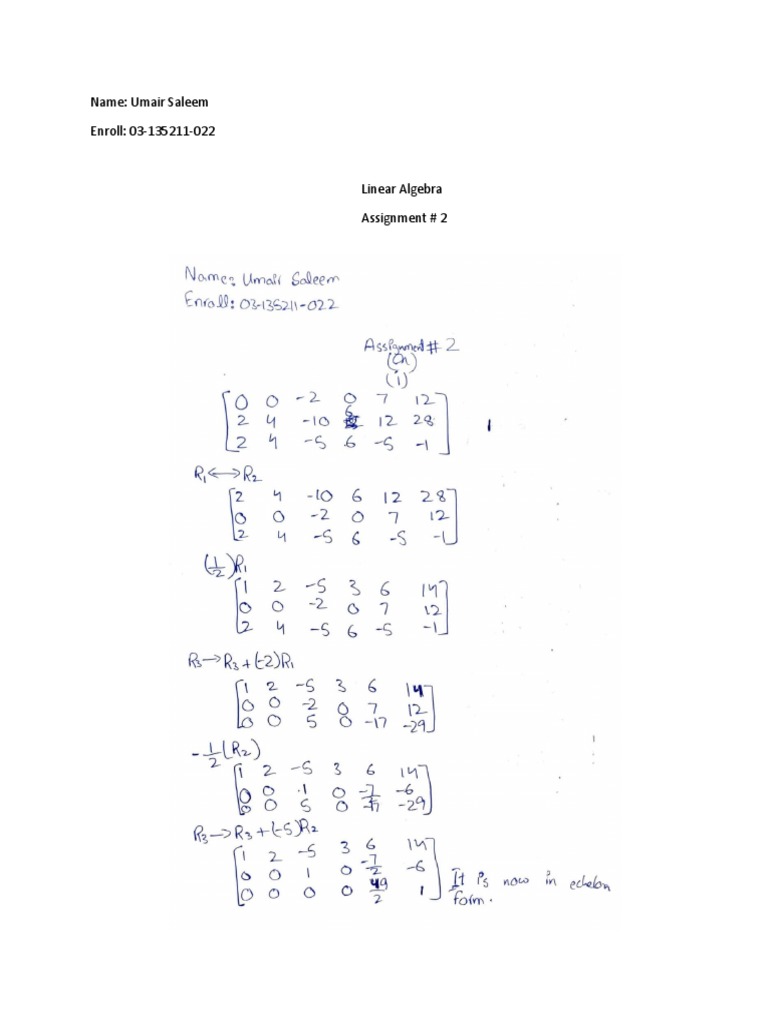 Name: Umair Saleem
Enroll: 03-135211-022
Linear Algebra
Assignment # 2
Name: Umair Saleem
Enroll: 03-135211-022
Assignment # 2
(Qn)
(i)
[0 0 -2 0 7 12
2 4 -10 6 12 28
2 4 -5 6 -5 -1]
R₁↔R₂
[2 4 -10 6 12 28
0 0 -2 0 7 12
2 4 -5 6 -5 -1]
(1/2)R₁
[1 2 -5 3 6 14
0 0 -2 0 7 12
2 4 -5 6 -5 -1]
R₃→R₃+(-2)R₁
[1 2 -5 3 6 14
0 0 -2 0 7 12
0 0 5 0 -17 -29]
-1/2(R₂)
[1 2 -5 3 6 14
0 0 1 0 -7/2 -6
0 0 5 0 -17 -29]
R₃→R₃+(-5)R₂
[1 2 -5 3 6 14
0 0 1 0 -7/2 -6
0 0 0 0 49/2 1] It is now in echelon
form.